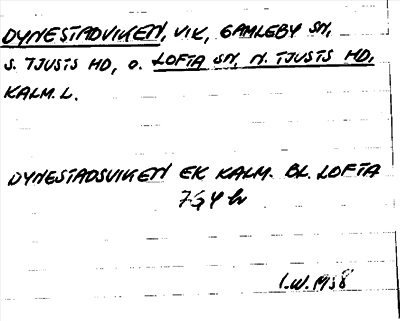 DYNESTADVIKEN, VIK, GAMLEBY SN,
S. TJUSTS HD, O. LOFTA SN, N. TJUSTS HD,
KALM. L.
DYNESTADSVIKEN EK KALM. BL. LOFTA
7G4h
I.W. 1958